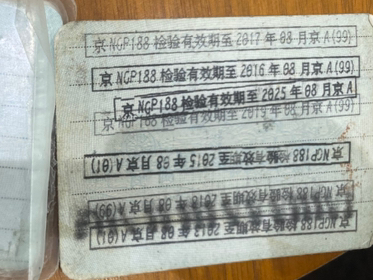 京NGP188 检验有效期至2017年08月京A(99)
京NGP188 检验有效期至2016年08月京A(99)
京NGP188 检验有效期至2025年08月京A
京NGP188 检验有效期至2019年08月京A(99)
京NGP188 检验有效期至2015年08月京A(01)
京NGP188 检验有效期至2018年08月京A(99)
京NGP188 检验有效期至2013年08月京A(01)